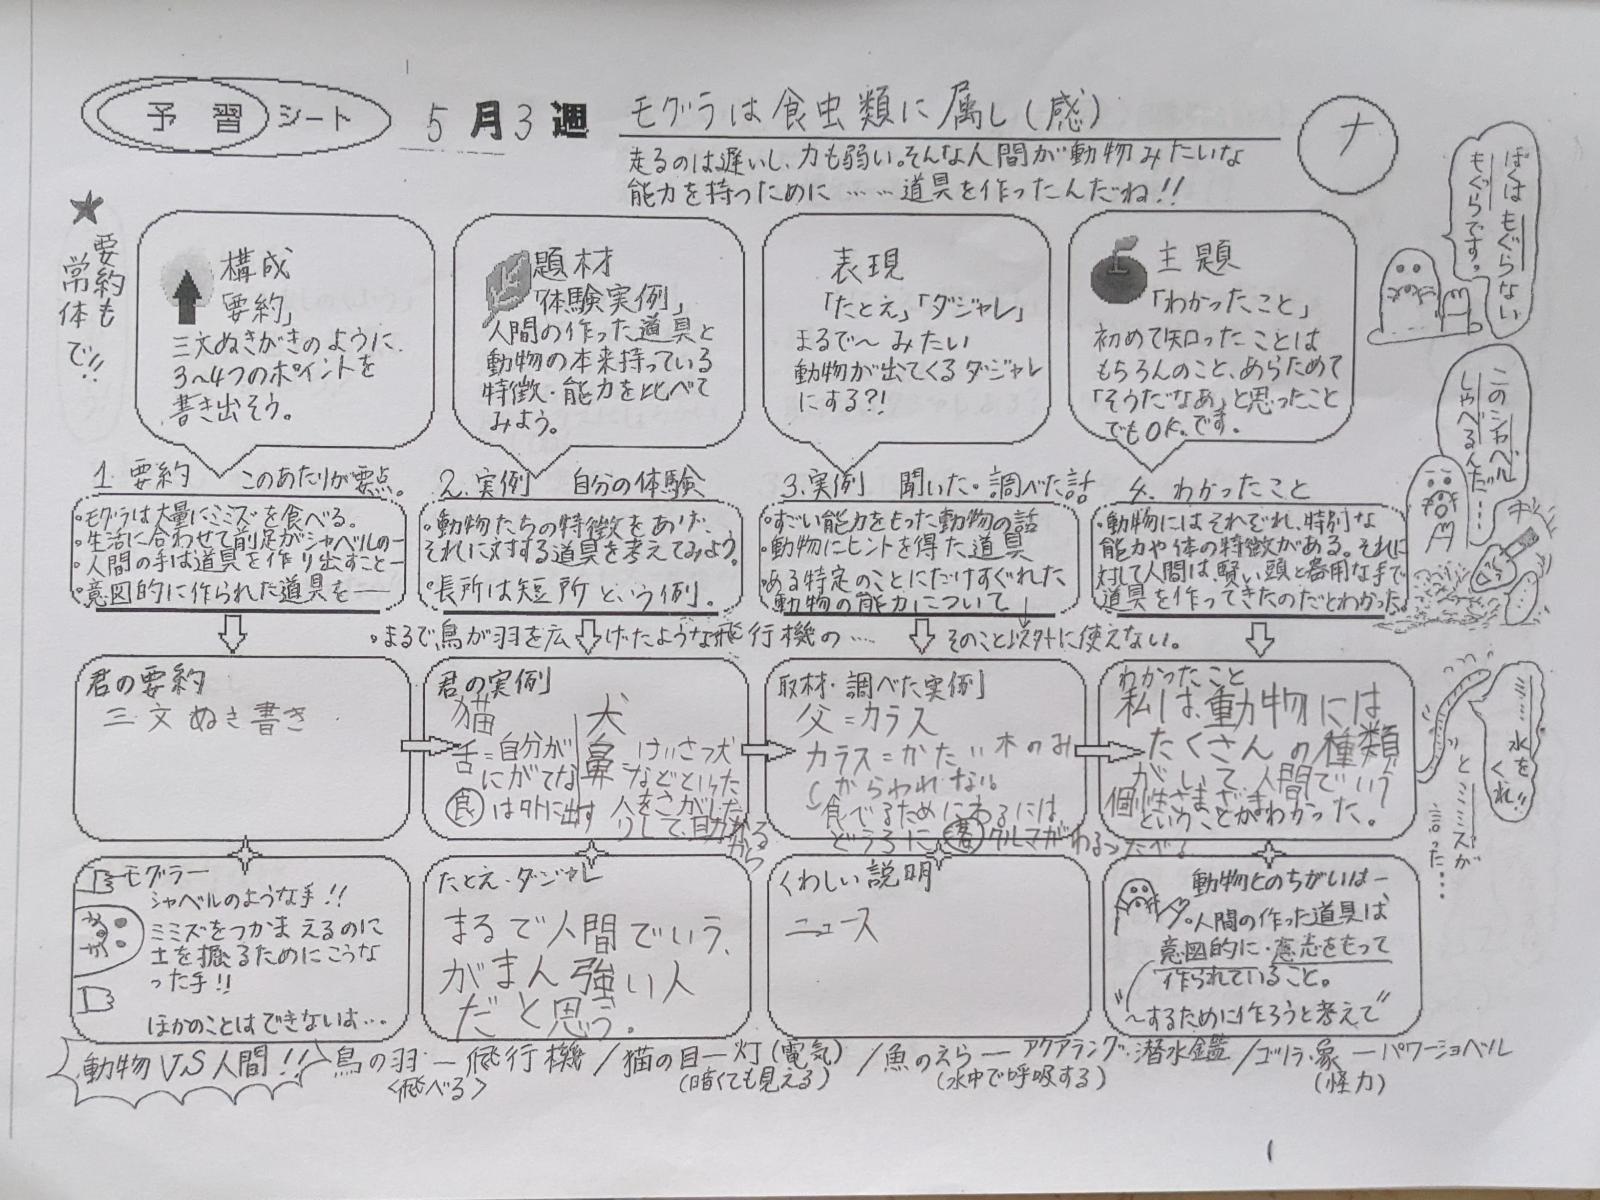 予習シート
5月3週
モグラは食虫類に属し(感)
ナ
走るのは遅いし、力も弱い。そんな人間が動物みたいな
能力を持つために……道具を作ったんだね!!
★要約も
常体で!!
構成
「要約」
三文ぬきがきのように、
3~4つのポイントを
書き出そう。
題材
「体験実例」
人間の作った道具と
動物の本来持っている
特徴・能力を比べて
みよう。
表現
「たとえ」「ダジャレ」
まるで~みたい
動物が出てくるダジャレ
にする?!
主題
「わかったこと」
初めて知ったことは
もちろんのこと、あらためて
「そうだなあ」と思ったこと
でもOK。です。
ぼくはもぐらない
もぐらです。
このシャベル
しゃべるんだ…
1. 要約 このあたりが要点。
・モグラは大量にミミズを食べる。
・生活に合わせて前足がシャベルの―
・人間の手は道具を作り出すこと―
・意図的に作られた道具を――
2. 実例 自分の体験
・動物たちの特徴をあげ、
それに対する道具を考えてみよう。
・長所は短所という例。
3. 実例 聞いた・調べた話
・すごい能力をもった動物の話
・動物にヒントを得た道具
・ある特定のことにだけすぐれた
動物の能力について
そのこと以外に使えない。
4. わかったこと
・動物にはそれぞれ、特別な
能力や体の特徴がある。それに
対して人間は、賢い頭と器用な手で
道具を作ってきたのだとわかった。
・まるで、鳥が羽を広げたような飛行機の……
君の要約
三文ぬき書き
君の実例
猫
舌=自分が
にがてな
食は外に出す
犬
鼻=けいさつ犬
などといった
人をさがした
りして、助かる
から
取材・調べた実例
父=カラス
カラス=かたい木のみ
からわれない。
食べるためにわるには、
どうろに
クルマがわる
たべる
わかったこと
私は、動物には
たくさんの種類
がいて、人間でいう
個性さまざま
ということがわかった。
ミミズ
水を
くれ!!
とミミズが
言った…
モグラ―
シャベルのような手!!
ミミズをつかまえるのに
土を掘るためにこうな
った手!!
ほかのことはできないは…
たとえ・ダジャレ
まるで人間でいう、
がまん強い人
だと思う。
くわしい説明
ニュース
動物とのちがいは―
人間の作った道具は、
意図的に・意志をもって
作られていること。
"~するために作ろうと考えて"
動物VS人間!!
鳥の羽―飛行機/猫の目―灯(電気)/魚のえら―アクアラング・潜水鑑/ゴリラ・象―パワーショベル
<飛べる> (暗くても見える) (水中で呼吸する) (怪力)
1